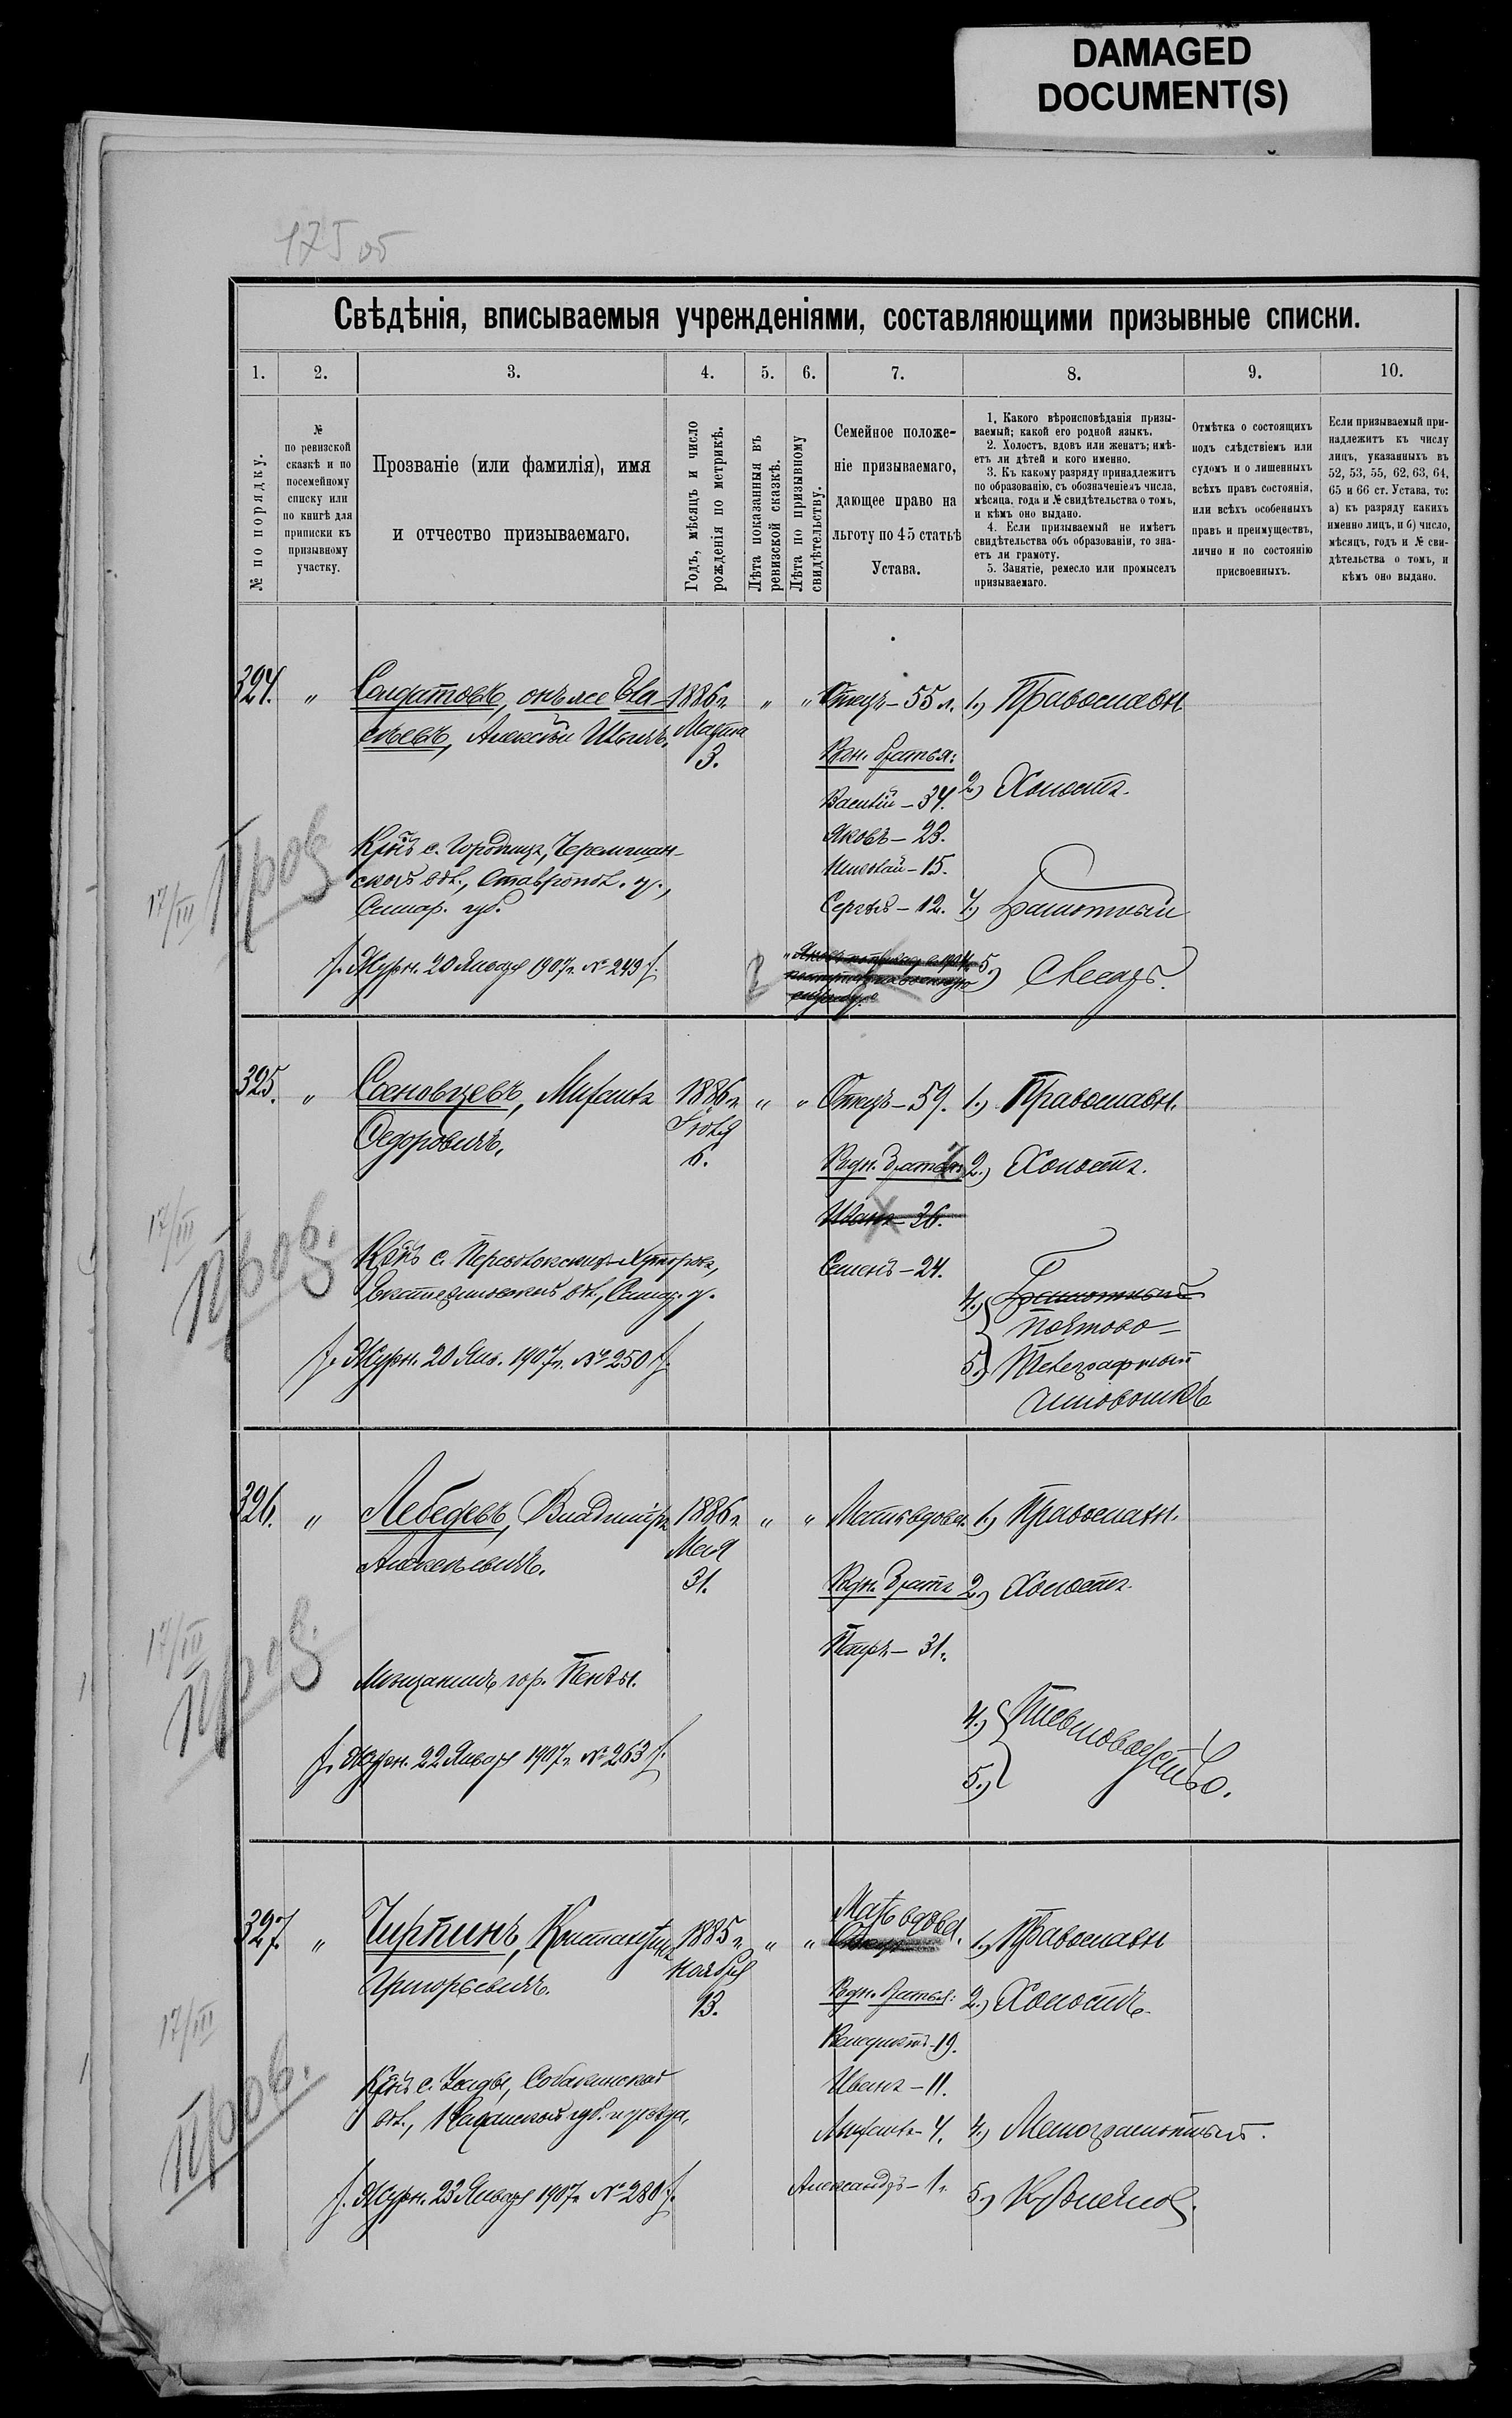 DAMAGED
DOCUMENT(S)
175 об
Свѣдѣнія, вписываемыя учрежденіями, составляющими призывные списки.
1. 2. 3. 4. 5. 6. 7. 8. 9. 10.
№ по порядку.
№
по ревизской
сказкѣ и по
посемейному
списку или
по книгѣ для
приписки къ
призывному
участку.
Прозваніе (или фамилія), имя
и отчество призываемаго.
Годъ, мѣсяцъ и число
рожденія по метрикѣ.
Лѣта показанныя въ
ревизской сказкѣ.
Лѣта по призывному
свидѣтельству.
Семейное положе-
ніе призываемаго,
дающее право на
льготу по 45 статьѣ
Устава.
1. Какого вѣроисповѣданія призы-
ваемый; какой его родной языкъ.
2. Холостъ, вдовъ или женатъ; имѣ-
етъ ли дѣтей и кого именно.
3. Къ какому разряду принадлежитъ
по образованію, съ обозначеніемъ числа,
мѣсяца, года и № свидѣтельства о томъ,
и кѣмъ оно выдано.
4. Если призываемый не имѣетъ
свидѣтельства объ образованіи, то зна-
етъ ли грамоту.
5. Занятіе, ремесло или промыселъ
призываемаго.
Отмѣтка о состоящихъ
подъ слѣдствіемъ или
судомъ и о лишенныхъ
всѣхъ правъ состоянія,
или всѣхъ особенныхъ
правъ и преимуществъ,
лично и по состоянію
присвоенныхъ.
Если призываемый при-
надлежитъ къ числу
лицъ, указанныхъ въ
52, 53, 55, 62, 63, 64,
65 и 66 ст. Устава, то:
а) къ разряду какихъ
именно лицъ, и б) число,
мѣсяцъ, годъ и № сви-
дѣтельства о томъ, и
кѣмъ оно выдано.
324. " Солдатовъ, онъ же Ела- 1886 г. " " Отецъ – 55 л. 1.) Православн.
Алексѣй Марта
3.
Родн. братья:
Василій – 34. 2.) Холостъ.
Яковъ – 23.
Николай – 15.
Сергѣй – 12. 4.) Грамотный
17/III Пров
Кр-нъ с. Городищъ,
ской вол., Ставропол. у.,
Самар. губ.
Журн. 20 Января 1907 г. № 249
5.) Слесарь.
325. " Сосновцевъ, Михаилъ 1886 г. " " Отецъ – 59. 1.) Православн.
Федоровичъ. Іюля
6.
Родн. братъ 2.) Холостъ.
Иванъ – 26.
Семенъ – 24.
17/III Пров.
Кр-нъ с. Хуторовъ,
вол., Самар. у.
Журн. 20 Янв. 1907 г. № 250
4.) Грамотный
Почтово-
5.) Телеграфный
чиновникъ
326. " Лебедевъ, Владиміръ 1886 г. " " Мать вдова. 1.) Православн.
Алексѣевичъ. Мая
31.
Родн. братъ 2.) Холостъ.
Петръ – 31.
17/III Пров.
Мѣщанинъ гор. Пензы.
Журн. 22 Января 1907 г. № 263
4.)
5.) Письмоводство.
327. " Чирпинъ, Константинъ 1885 г. " " Мать вдова. 1.) Православн
Григорьевичъ. Ноября
13.
Родн. братья: 2.) Холостъ.
Венедиктъ – 19.
Иванъ – 11.
Михаилъ – 4. 4.) Малограмотный.
Александръ – 1 г.
17/III Пров.
Кр-нъ с. Собакинской
вол., Казанской губ. и уѣзда,
Журн. 23 Января 1907 г. № 280
5.)